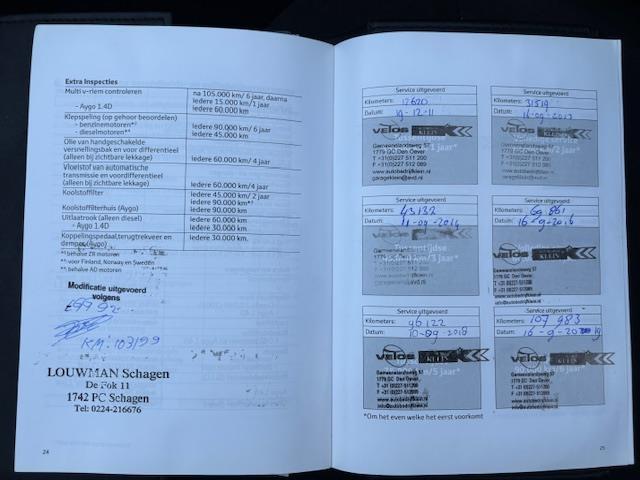 Extra Inspecties
Multi v-riem controleren na 105.000 km/ 6 jaar, daarna
iedere 15.000 km/1 jaar
- Aygo 1.4D iedere 60.000 km
Klepspeling (op gehoor beoordelen)
- benzinemotoren*¹ iedere 90.000 km/ 6 jaar
- dieselmotoren*³ iedere 45.000 km
Olie van handgeschakelde
versnellingsbak en voor differentieel
(alleen bij zichtbare lekkage) iedere 60.000 km/ 4 jaar
Vloeistof van automatische
transmissie en voordifferentieel
(alleen bij zichtbare lekkage) iedere 60.000 km/ 4 jaar
Koolstoffilter iedere 45.000 km/ 2 jaar
iedere 90.000 km*²
Koolstoffilterhuis (Aygo) iedere 90.000 km
Uitlaatrook (alleen diesel) iedere 60.000 km
- Aygo 1.4D iedere 30.000 km
Koppelingspedaal,terugtrekveer en
demper (Aygo) iedere 30.000 km.
*¹ behalve ZR motoren
*² voor Finland, Norway en Sweden
*³ behalve AD motoren
Modificatie uitgevoerd
volgens
KM: 103199
LOUWMAN Schagen
De Fok 11
1742 PC Schagen
Tel: 0224-216676
24
Service uitgevoerd
Kilometers: 12620
Datum: 19-12-11
VELOS KLEIN
Gemeenelandsweg 57
1779 GC Den Oever
T +31(0)227 511 200
F +31(0)227 512 089
www.autobedrijfklein.nl
Service uitgevoerd
Kilometers: 31519
Datum:
VELOS KLEIN
Gemeenelandsweg 57
1779 GC Den Oever
T +31(0)227 511 200
www.autobedrijfklein.nl
Service uitgevoerd
Kilometers: 43132
Datum: 11-09-2014
Service uitgevoerd
Kilometers: 69861
Datum: 16-9-2016
VELOS KLEIN
Gemeenelandsweg 57
1779 GC Den Oever
www.autobedrijfklein.nl
Service uitgevoerd
Kilometers: 96122
Datum: 10-09-2018
Gemeenelandsweg 57
1779 GC Den Oever
www.autobedrijfklein.nl
Service uitgevoerd
Kilometers: 107983
Datum: 16-9-2019
VELOS KLEIN
Gemeenelandsweg 57
1779 GC Den Oever
www.autobedrijfklein.nl
*Om het even welke het eerst voorkomt
25